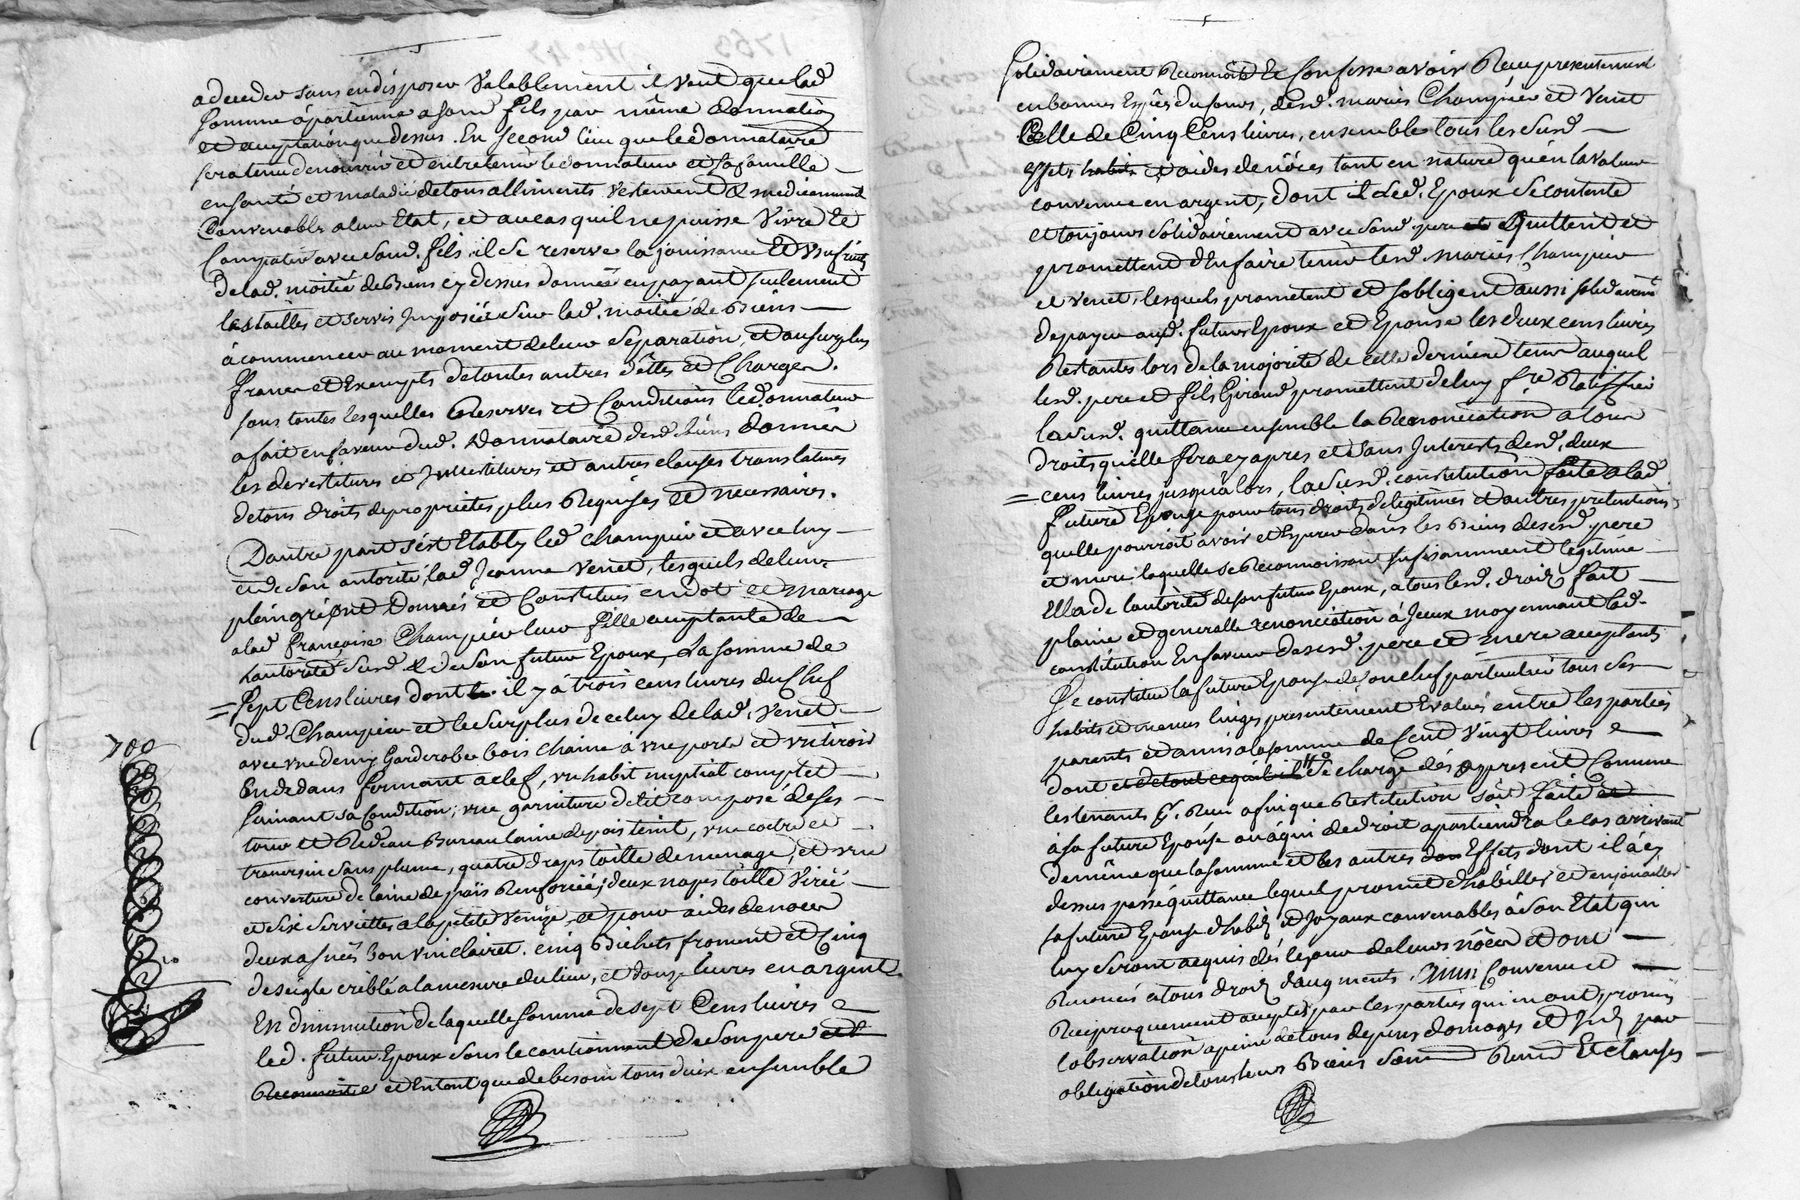 a deceder sans en disposer Valablement il veut que lad.
somme apartienne a sond fils par même donnation
et acceptation que dessus. En second lieu que le donnataire
sera tenu de nourrir et entretenir le donnateur et sa famille
en santé et maladie de tous alliments vestement & medicament
Convenable a leur Etat, et au cas quil ne puisse Vivre et
Compatir avec sond. fils il se reserve la jouissance et usufruit
de lad. moitié de Biens cy dessus donnée en payant seulement
les tailles et servis imposée sur lad. moitié de biens
à commencer au moment de leur separation, et au surplus
franc et Exempts de toutes autres dettes et Charges.
sous toutes lesquelles Reserves et Conditions led. donnateur
a fait en faveur dud. donnataire desd. biens donnés
les devestitures et Investitures et autres clauses translatives
de tous droits de proprietés plus Requises et necessaires.
Dautre part s'est Etably led Champier et avec luy
et de son autorité lad Jeanne Venet, lesquels de leur
plein gré ont Donnés et Constitués en dot et mariage
a lad françoise Champier leur fille acceptante de
lautorité susd & de son futur Epoux, La somme de
= Sept Cens livres dont il y à trois cens livres du Chef
dud. Champier et le surplus de celuy de lad. Venet
avec une demy Garderobe bois chaine à une porte et un tiroir
En dedans fermant a clef, un habit nuptial complet
suivant sa Condition, une garniture de lit composé de ses
tour et Rideau Bureau laine de pais teint, une coitre et
traversin sans plume, quatre draps toille de menage, et une
couverture de laine de païs Renforcée, deux napes toille
et six serviettes a la petite venize, et pour aides de noces
deux asnées bon vin clairet, cinq Bichets froment et Cinq
de seigle criblé a la mesure du lieu, et douze livres en argent
700
En diminution de laquelle somme de sept Cens livres
led. futur Epoux sous le cautionnement de son pere et
Reconnoit et En tant que de besoin tous deux ensemble
Solidairement Reconnoit et Confesse avoir Reçu presentement
en bonnes Espêces du jours, desd. mariés Champier et Venet
Celle de Cinq Cens livres, ensemble tous les susd
effets habits et aides de nôces tant en nature qu'en la valeur
convenue en argent, dont il led. Epoux se contente
et toujours solidairement avec sond. pere et Quittent et
promettent d'En faire tenir lesd. mariés Champier
et venet, lesquels promettent et s'obligent aussi solidairemt
de payer aud. futurs Epoux et Epouse les deux cens livres
Restantes lors de la majorité de cette derniere tems auquel
lesd. pere et fils Giraud promettent de luy fre Ratiffier
la susd. quittance ensemble la Renonciation a tous
droits qu'elle fera cy apres et sans Interests desd. deux
= cens livres jusqu'à lors, la susd. constitution faite a lad
future Epouse pour tous droits de legitimes et autres pretentions
quelle pourroit avoir et Esperer dans les biens de sesd. pere
et mere laquelle se Reconnoissant suffisamment legitimée
Ella de lautorité de son futur Epoux, a tous lesd. droits fait
plaine et generalle renonciation à Iceux moyennant lad.
constitution En faveur de sesd. pere et mere acceptants
Se constitue la future Epouse de son chef particulier tous ses
habits et menus linges presentement Evalués entre les parties
parents et amis a la somme de Cent Vingt livres
dont et de tout ce quil il se charge dés apresent Comme
les tenants affin que Restitution soit faite et
à sa future Epouse ou à qui de droit apartiendra le cas arrivant
de même que la somme et les autres Effets dont il à cy
dessus passé quittance lequel promet d'habiller et enjouailler
sa future Epouse d'habits et Joyaux convenables à son Etat qui
luy seront acquis dés le jour de leurs nôces et ont
Renoncés a tous droits d'augments. Ainsi Convenu et
Reciproquement accepté par les parties qui en ont promis
lobservation a peine de tous depens domages et par
obligation de tous leurs Biens Et clauses